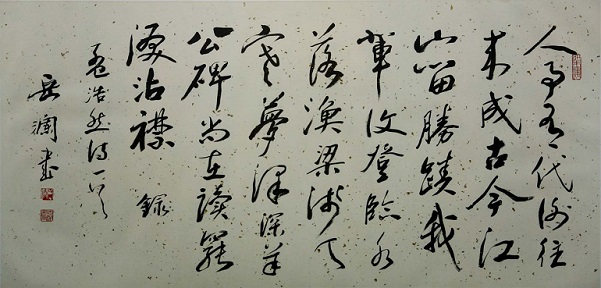 人事有代謝往
來成古今江
山留勝蹟我
輩復登臨水
落漁梁淺天
寒夢澤深羊
公碑尚在讀罷
淚沾襟 錄
孟浩然詩一首
岳瀾書